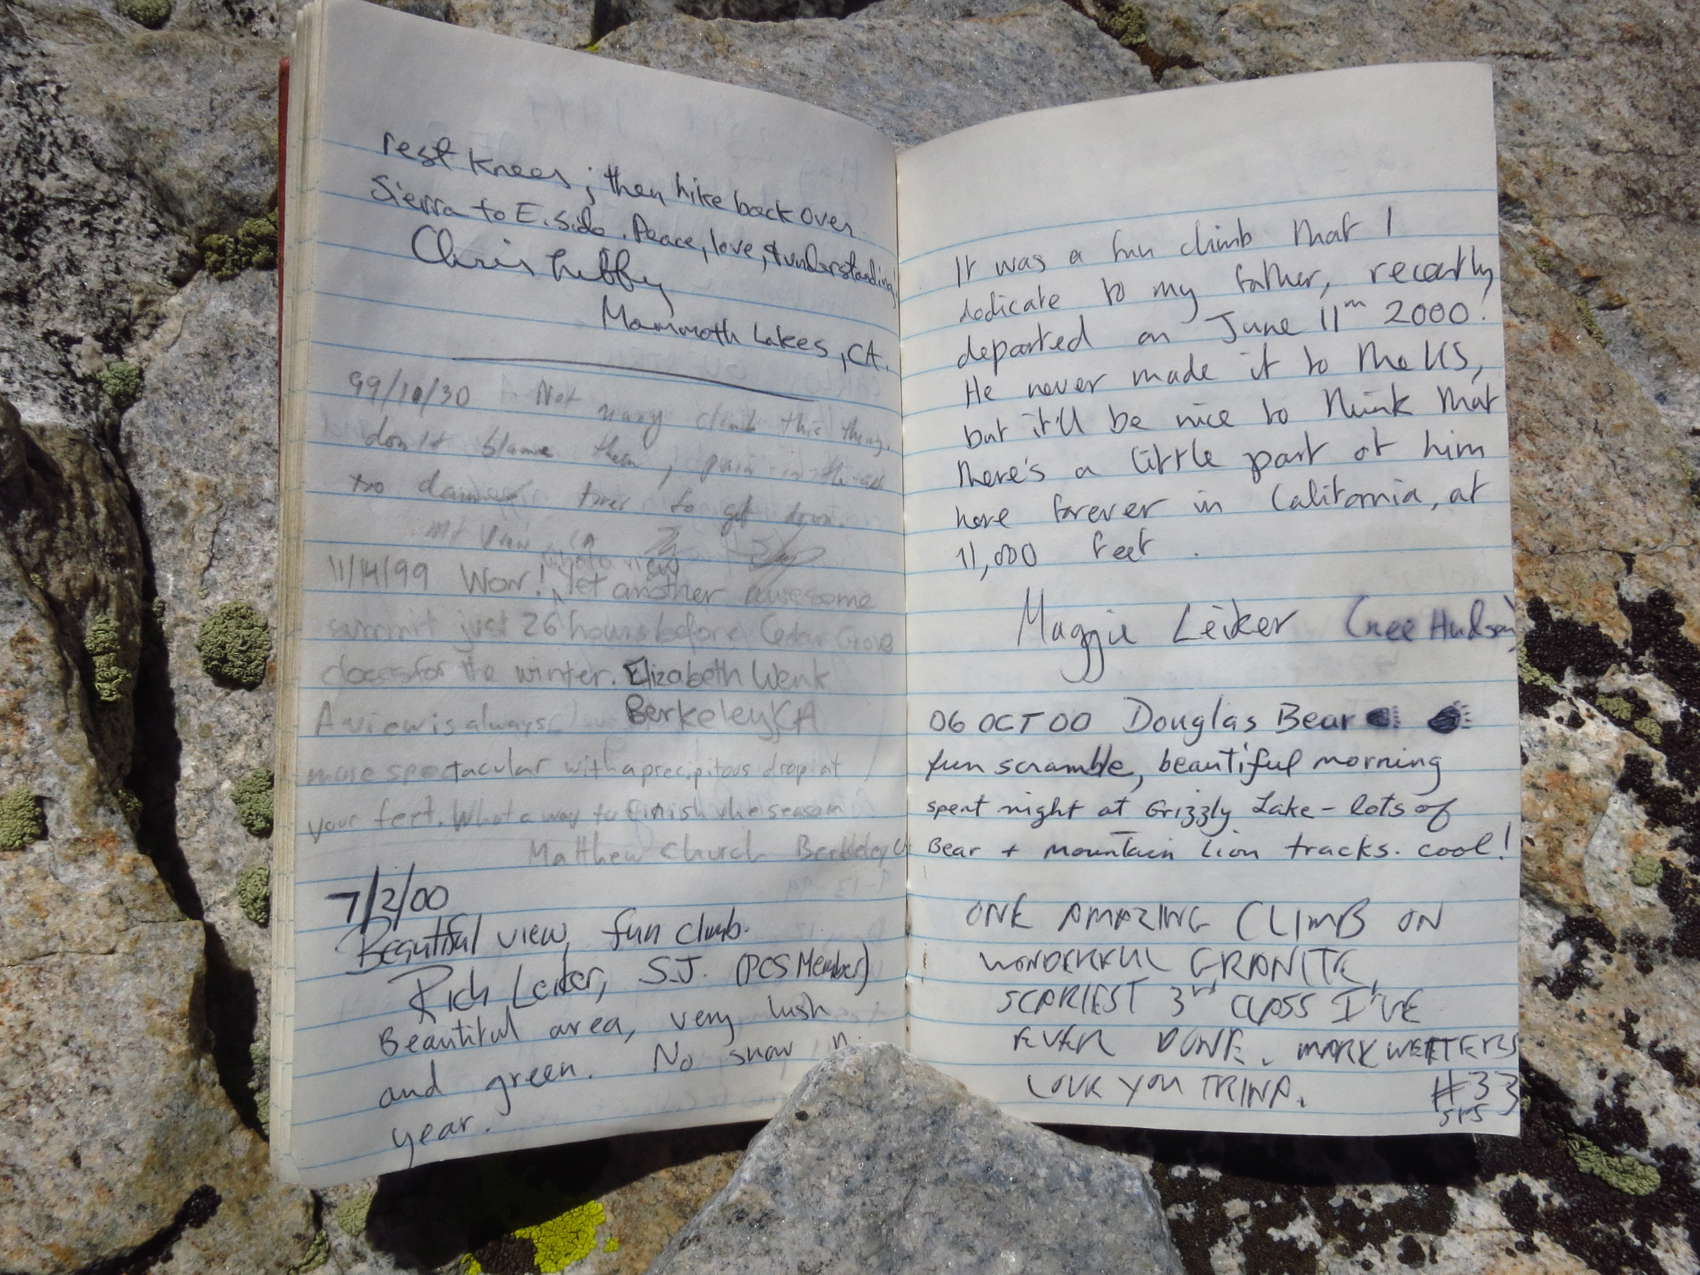 rest knees; then hike back over
Sierra to E. side. Peace, love, & understanding!
Chris
Mammoth Lakes, CA.
99/10/30 Not many climb this thing,
don't blame them, pain in the ass
too damn to get down.
Mt View, CA
photo view
11/14/99 Wow! Yet another awesome
summit just 26 hours before Cedar Grove
closes for the winter. Elizabeth Wenk
Berkeley, CA
A view is always
more spectacular with a precipitous drop at
your feet. What a way to finish the season
Matthew Church Berkeley
7/2/00
Beautiful view, fun climb.
Rich Leiker, S.J. (PCS Member)
Beautiful area, very lush
and green. No snow
year.
It was a fun climb that I
dedicate to my father, recently
departed on June 11th 2000!
He never made it to the US,
but it'll be nice to think that
there's a little part of him
here forever in California, at
11,000 feet.
Maggie Leiker (nee Hudson)
06 OCT 00 Douglas Bear
fun scramble, beautiful morning
spent night at Grizzly Lake - lots of
Bear + mountain lion tracks. cool!
ONE AMAZING CLIMB ON
WONDERFUL GRANITE,
SCARIEST 3rd CLASS I'VE
EVER DONE. MARK WETTERS
LOVE YOU TRINA. #33
SPS